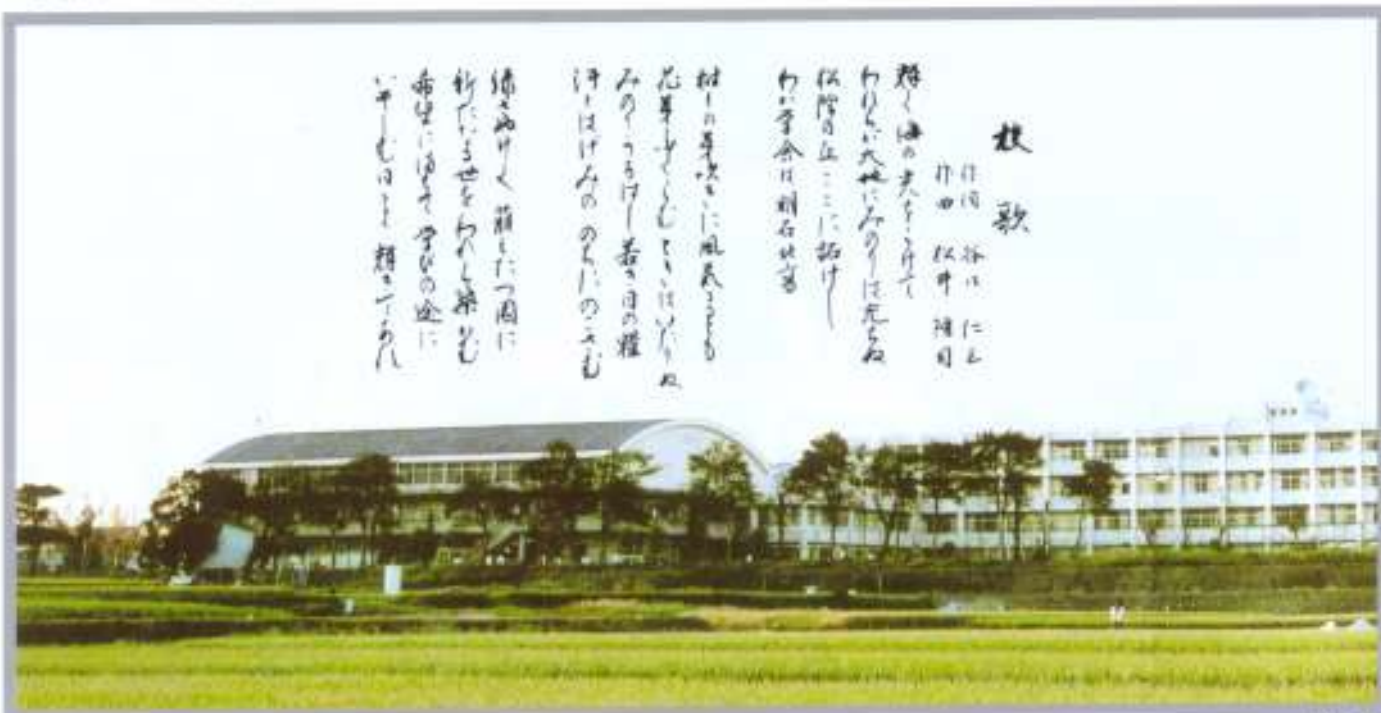 校歌
作詞 谷口
作曲 松井
輝く海の光をうけて
われらが大地にみのりは充ちぬ
松陰の丘ここに拓けし
わが学舎は明石北高
樹々の芽吹きに風荒るるとも
花芽ふくらむときはいたりぬ
みのりうるはし若き日の糧
汗とはげみの のちにのこさむ
緑さやけく 萌えたつ園に
新たなる世をわれら築かむ
希望に満ちて 学びの途に
いそしむ日々よ 輝きてあれ